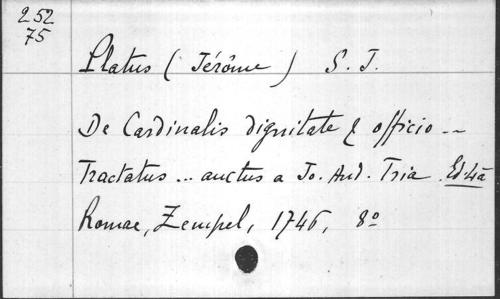 252
75
Platus (Jérôme) S. J.
De Cardinalis dignitate & officio --
Tractatus ... auctus a Jo. And. Tria Ed. 4a
Romae, Zempel, 1746, 8o